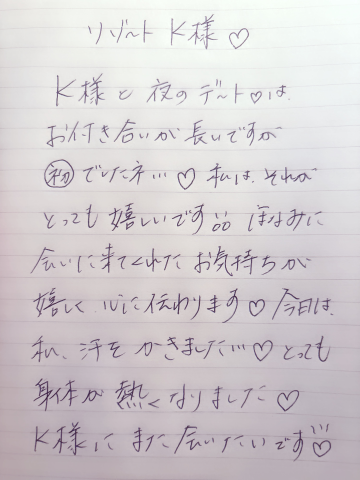 リゾート K様♡
K様と夜のデート♡は、
お付き合いが長いですが
初でしたネ…♡ 私は、それが
とっても嬉しいです ほなみに
会いに来てくれたお気持ちが
嬉しく 心に伝わります♡今日は、
私、汗をかきました…♡とっても
身体が熱くなりました♡
K様にまた会いたいです♡